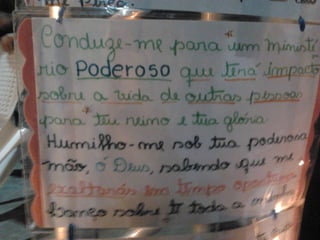 me pres
Conduze-me para um ministé
rio Poderoso que terá impacto
sobre a vida de outras pessoas
para teu reino e tua glória.
Humilho-me sob tua poderosa
mão, ó Deus, sabendo que me
exaltarás em tempo oportuno
Lanço sobre ti toda a minha